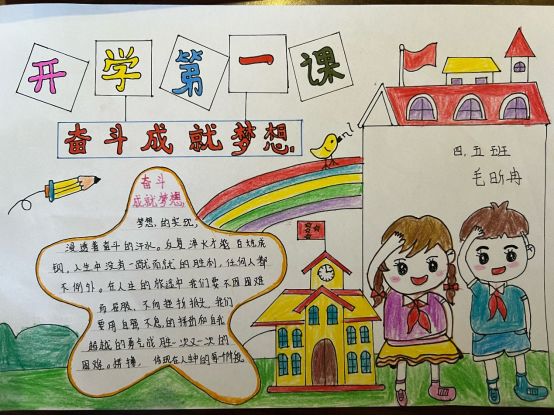 开学第一课
奋斗成就梦想
四.五班
毛昕冉
奋斗
成就梦想
梦想的实现,
浸透着奋斗的汗水。滴水方能
人生中没有一蹴而就的胜利,任何人都
不例外。在人生的旅途中我们要不因困难
而屈服,不向挫折低头,我们
要用自强不息的拼劲和自我
超越的勇气战胜一次又一次的
困难。拼搏,体现在人生的每个阶段。